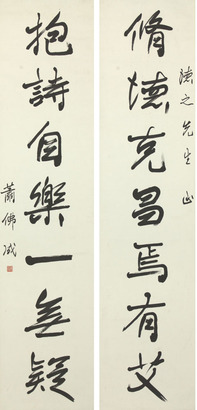 德之先生正
脩德克昌焉有艾
抱詩自樂一無疑
蕭佛成